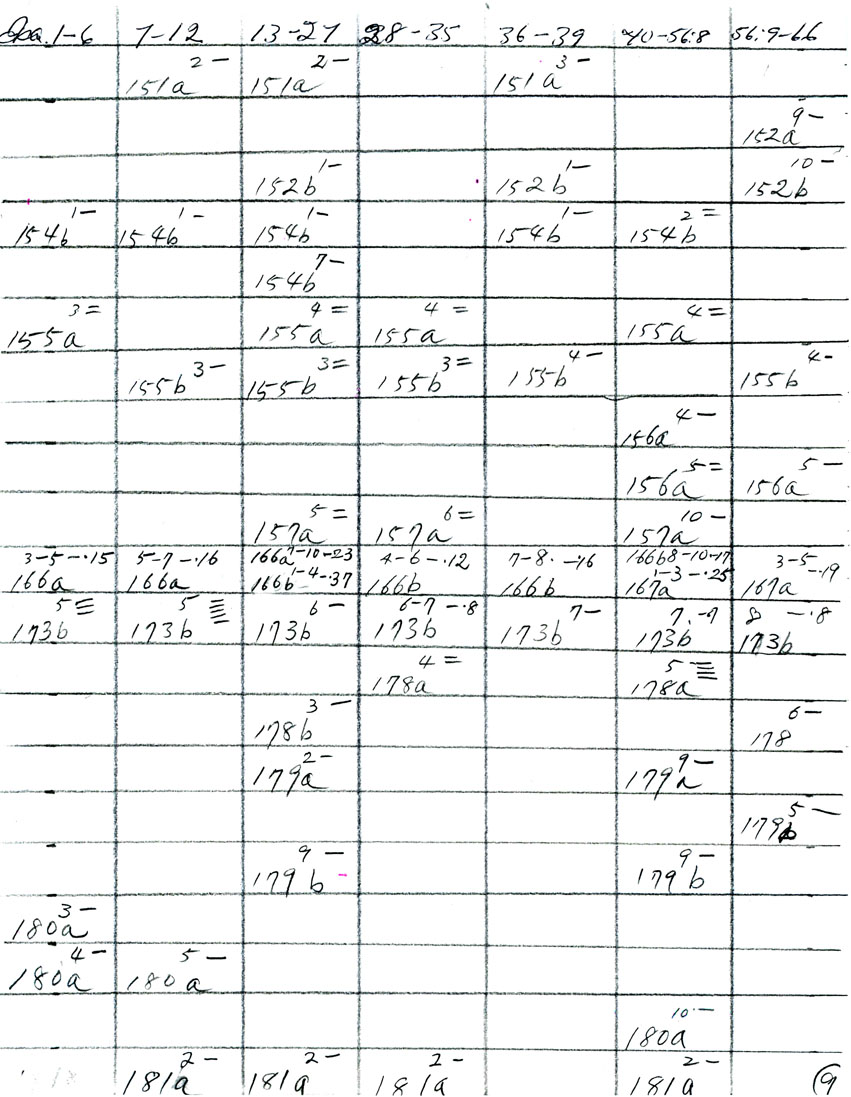 1-6 7-12 13-27 28-35 36-39 40-56:8 56:9-66
2- 2- 3-
151a 151a 151a
9-
152a
1- 1- 10-
152b 152b 152b
1- 1- 1- 1- 2=
154b 154b 154b 154b 154b
7-
154b
3= 4= 4= 4=
155a 155a 155a 155a
3- 3= 3= 4- 4-
155b 155b 155b 155b 155b
4-
156a
5= 5-
156a 156a
5= 6= 10-
157a 157a 157a
3-5-·15 5-7-·16 166a 7-10-23 4-6-·12 7-8·-16 166b 8-10-17 3-5-·19
166a 166a 166b 1-4-37 166b 166b 167a 1-3-·25 167a
5≡ 5≡ 6- 6-7-·8 7- 7·-7 8 -·8
173b 173b 173b 173b 173b 173b 173b
4= 5≡
178a 178a
3- 6-
178b 178
2- 9-
179a 179a
5-
179b
9- 9-
179b 179b
3-
180a
4- 5-
180a 180a
10-
180a
2- 2- 2- 2-
181a 181a 181a 181a 9